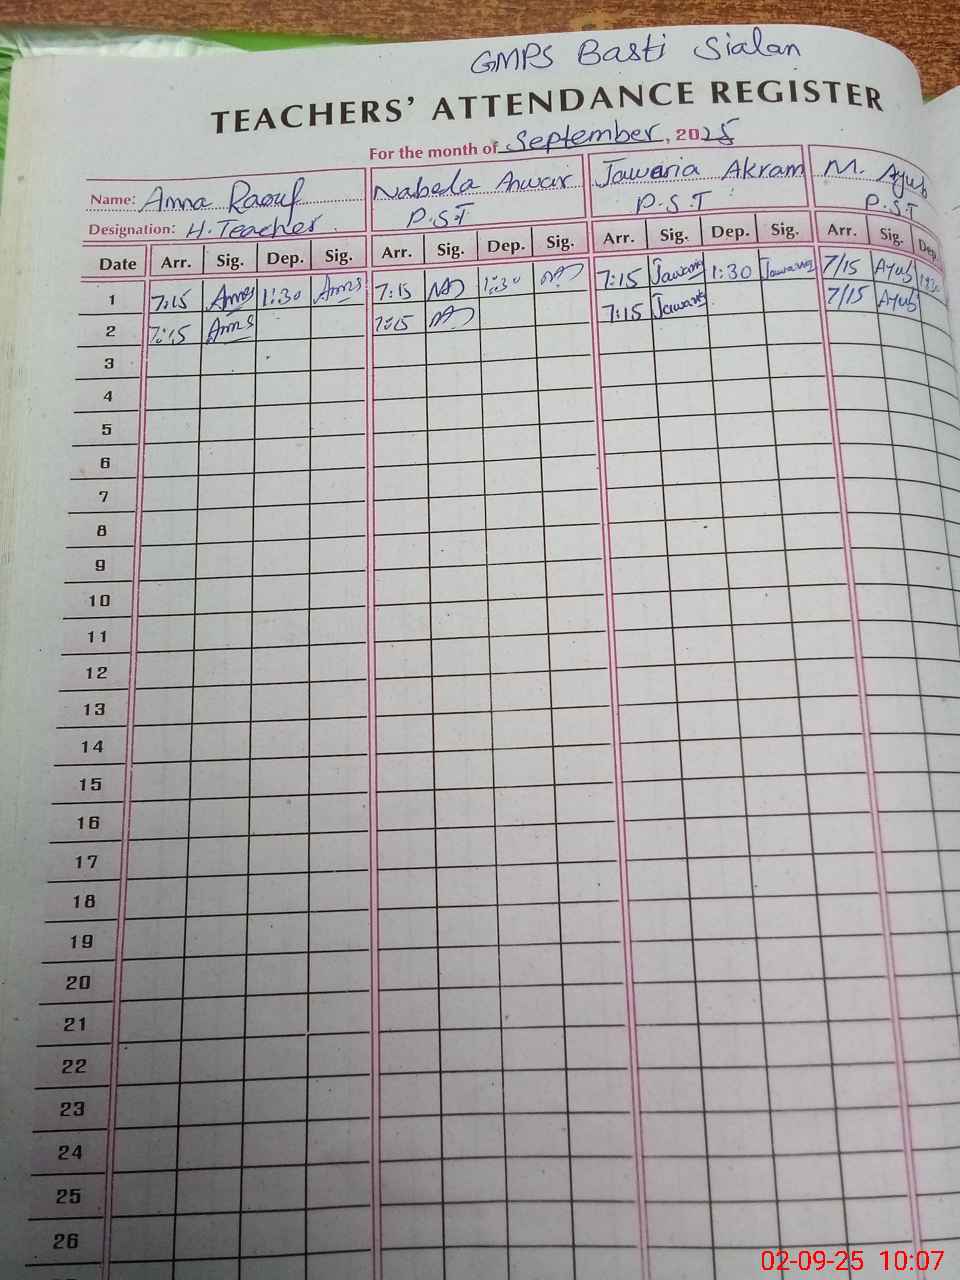 GMPS Basti Sialan
TEACHERS' ATTENDANCE REGISTER
For the month of September, 2025
Name: Amna Raouf Nabela Anwar Jawaria Akram M. Ayub
Designation: H. Teacher P.S.T P.S.T P.S.T
Date Arr. Sig. Dep. Sig. Arr. Sig. Dep. Sig. Arr. Sig. Dep. Sig. Arr. Sig. Dep.
1 7:15 1:30 7:15 1:30 7:15 Jawaria 1:30 Jawaria 7/15 Ayub 1:30
2 7:15 7:15 7:15 Jawaria 7/15 Ayub
3
4
5
6
7
8
9
10
11
12
13
14
15
16
17
18
19
20
21
22
23
24
25
26
02-09-25 10:07